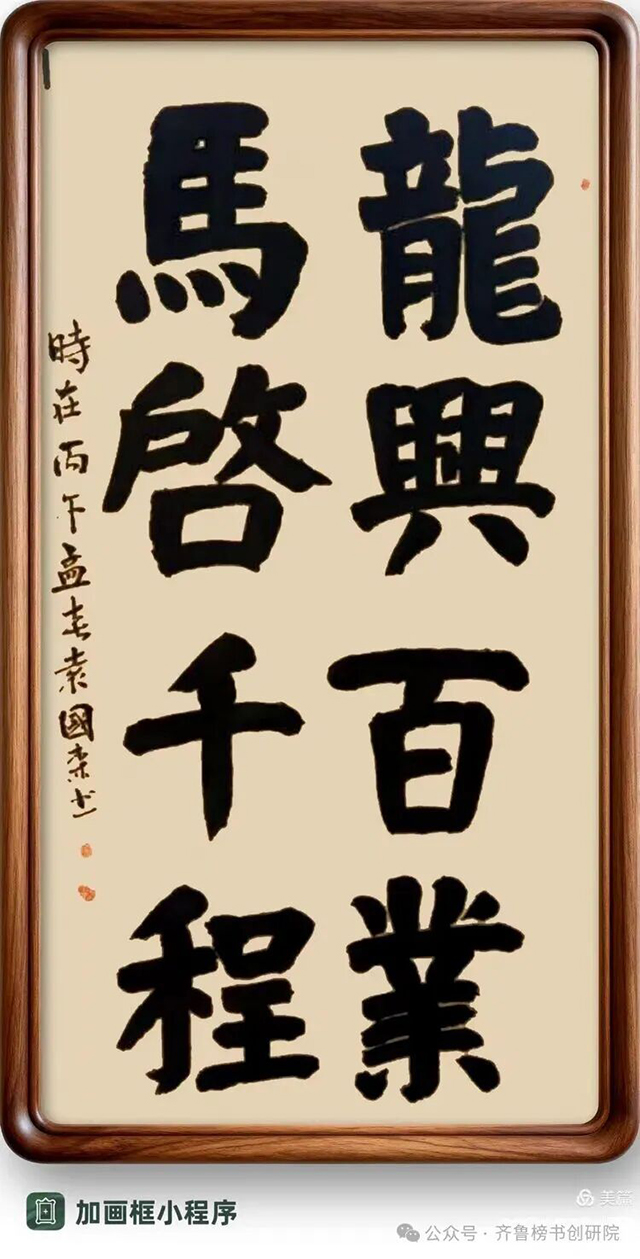 龍興百業
馬啓千程
時在丙午孟春袁國棠书
加画框小程序
美篇
公众号·齐鲁榜书创研院